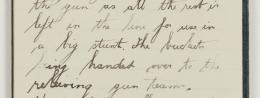 the gun as all the rest is
left in the line for use in
a big stunt, the buckets
being handed over to the
relieving gun team.